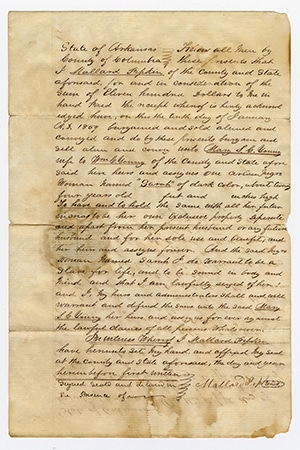 State of Arkansas } Know all Men by
County of Columbia } these presents that
I Mallard Pipkin of the County and State
aforesaid, for and in consideration of the
Sum of Eleven hundred Dollars to me in
hand paid the receipt whereof is hereby acknowl
edged have, on this the tenth day of January
A.D. 1859 bargained and Sold aliened and
conveyed and do by these presents bargain and
Sell alien and convey unto Mary L C Young
wife to Wm G Young of the County and State afore
said her heirs and assigns one certain negro
Woman named Sarah of dark color, about twenty
four years old feet and inches high
To have and to hold the same with all her future
increase to be her own exclusive property Separate
and apart from her present husband or any future
husband and for her sole use and benefit, and
her heirs and assigns forever. And the said negro
woman Named Sarah I do warrant to be a
Slave for life, and to be Sound in body and
Mind and that I am lawfully seized of her:
and I My heirs and administrators shall and will
warrant and defend the same unto the said Mary
L C Young her heirs and assigns for ever against
the lawful claims of all persons Whatsoever.
In witness Whereof I Mallard Pipkin
have hereunto Set My hand, and affixed My Seal
at the County and State aforesaid, the day and year
herein before first written
Signed Seald and delivered } Mallard Pipkin
in Presence of